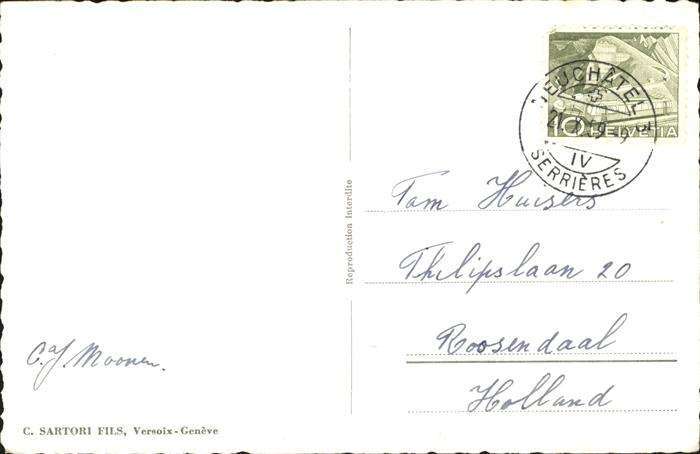 NEUCHÂTEL 3
IV
SERRIÈRES
10 HELVETIA
Reproduction Interdite
Tom Huisers
Philipslaan 20
Roosendaal
Holland
C. SARTORI FILS, Versoix-Genève